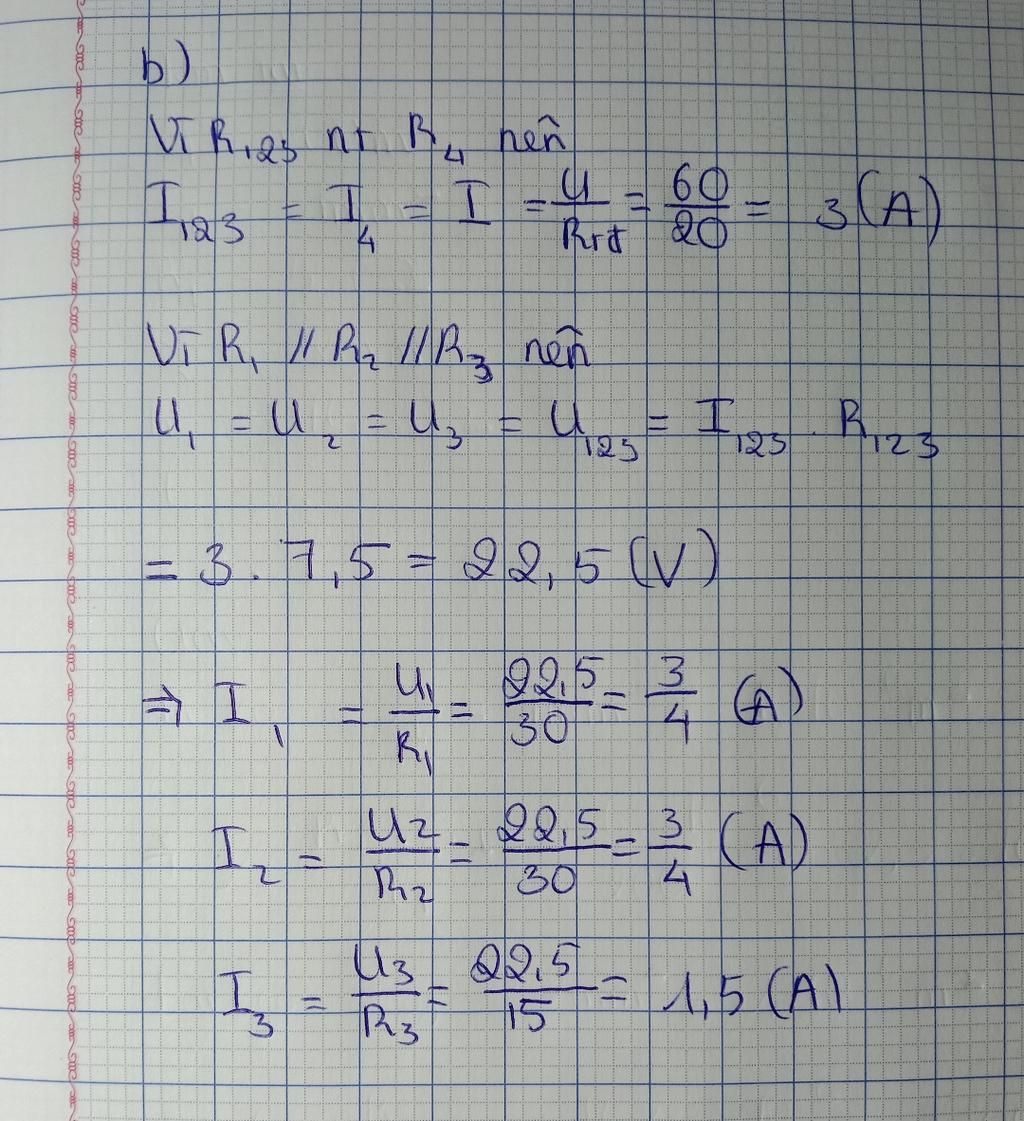 b)
Vì R₁₂₃ nt R₄ nên
I₁₂₃ = I₄ = I = U/Rtđ = 60/20 = 3 (A)
Vì R₁ // R₂ // R₃ nên
U₁ = U₂ = U₃ = U₁₂₃ = I₁₂₃ . R₁₂₃
= 3 . 7,5 = 22,5 (V)
⇒ I₁ = U₁/R₁ = 22,5/30 = 3/4 (A)
I₂ = U₂/R₂ = 22,5/30 = 3/4 (A)
I₃ = U₃/R₃ = 22,5/15 = 1,5 (A)